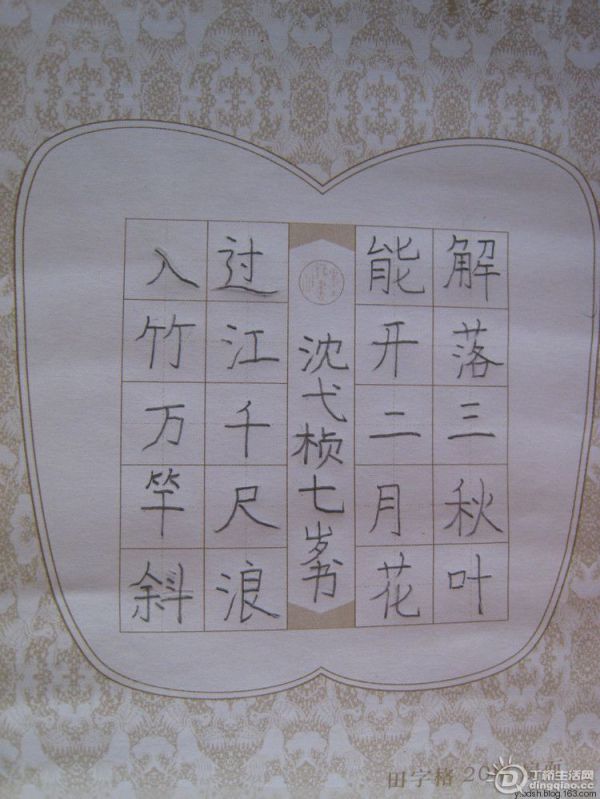 解落三秋叶
能开二月花
沈弋桢七岁书
过江千尺浪
入竹万竿斜
田字格 20
丁桥生活网
dingqiao.cc
ytxdsh.blog.163.com